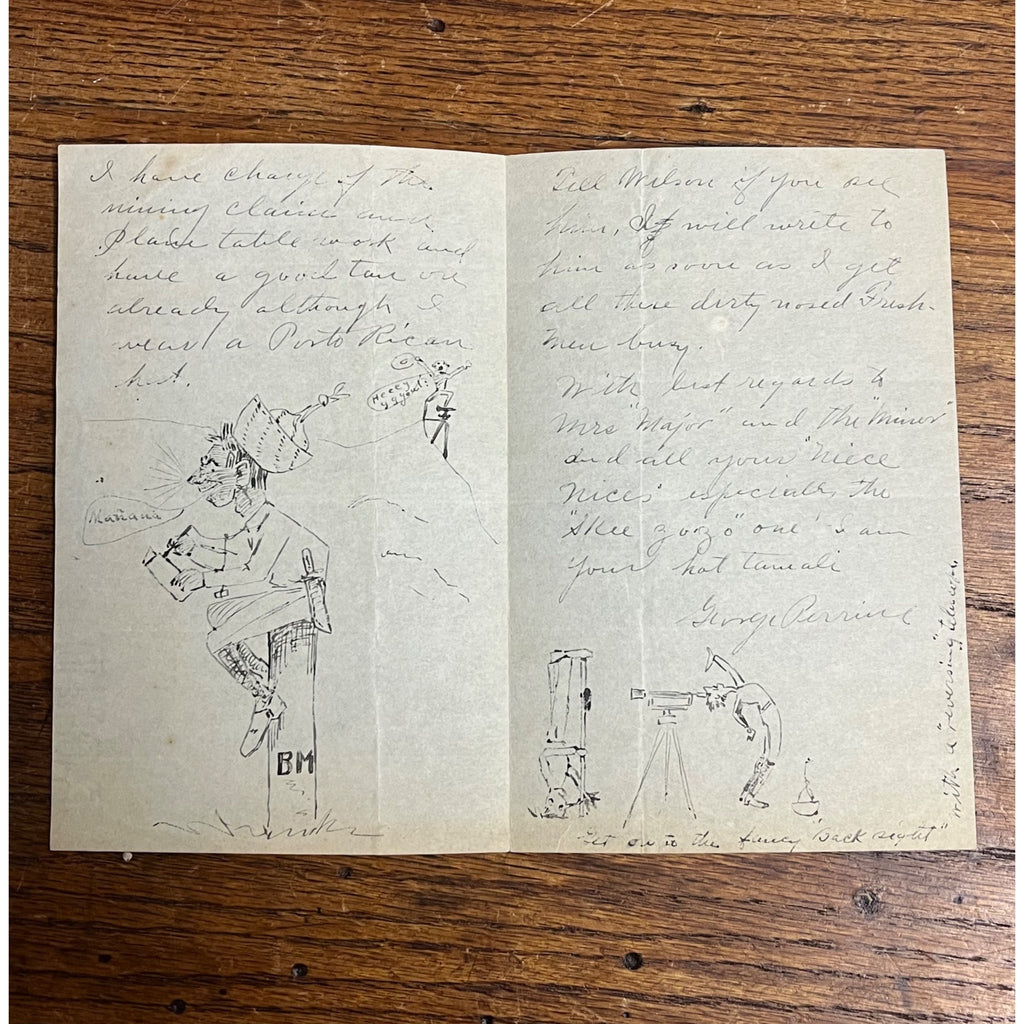 I have charge of the
mining claims and
plane table work and
have a good tan on
already although I
wear a Porto Rican
hat.
Heeey
yyyou!
Mañana
BM
Tell Wilson if you see
him, I will write to
him as soon as I get
all these dirty nosed Fresh-
men busy.
With best regards to
Mrs "Major" and the "Minor"
and all your "Niece
Nices" especially the
"Skee zoozo" one I am
your hot tamali
George Perrine
Get on to the fancy "back sight"
with a "reversing" telescope.